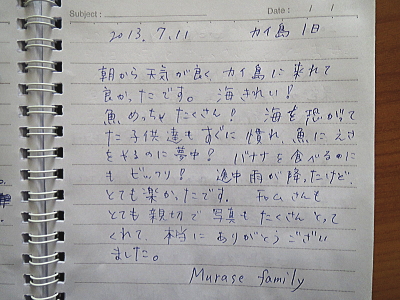 Subject : Date : / /
2013.7.11 カイ島 1日
朝から天気が良く、カイ島に来れて
良かったです。 海きれい!
魚めっちゃたくさん! 海を恐がって
た子供達もすぐに慣れ、魚にえさ
をやるのに夢中! バナナを食べるのに
もビックリ! 途中雨が降ったけど、
とても楽かったです。 さんも
とても親切で写真もたくさんとって
くれて、本当にありがとうござい
ました。
Murase family